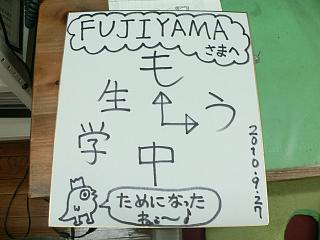 FUJIYAMA
さまへ
も
う
中
学
生
2010.9.27
ためになった
ねぇ〜♪